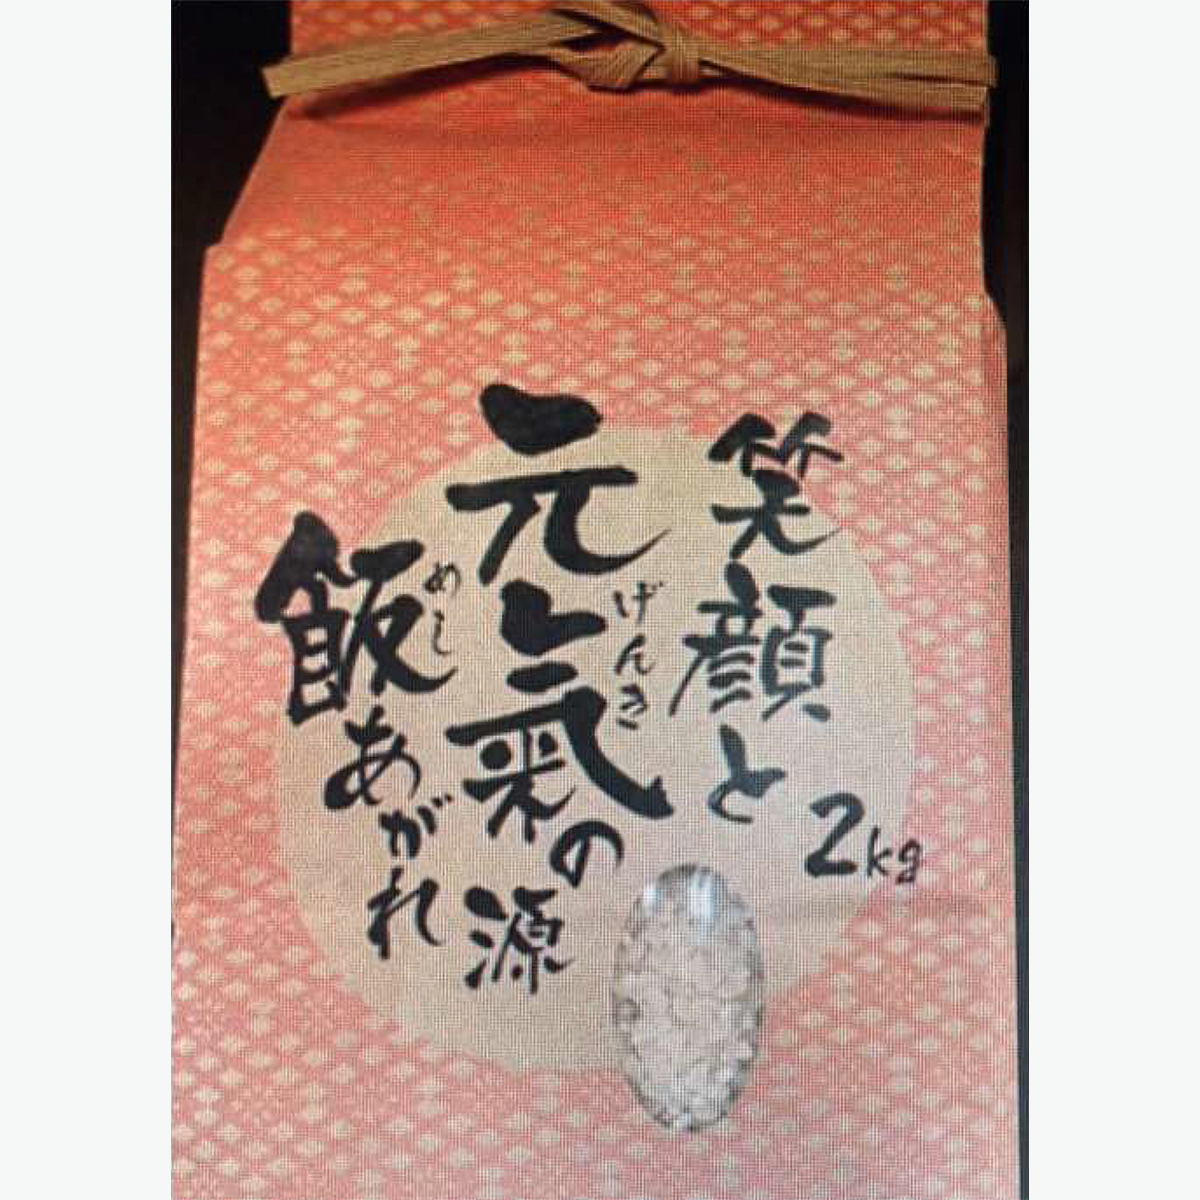 笑顔と
元氣の源
げんき
飯あがれ
めし
2kg